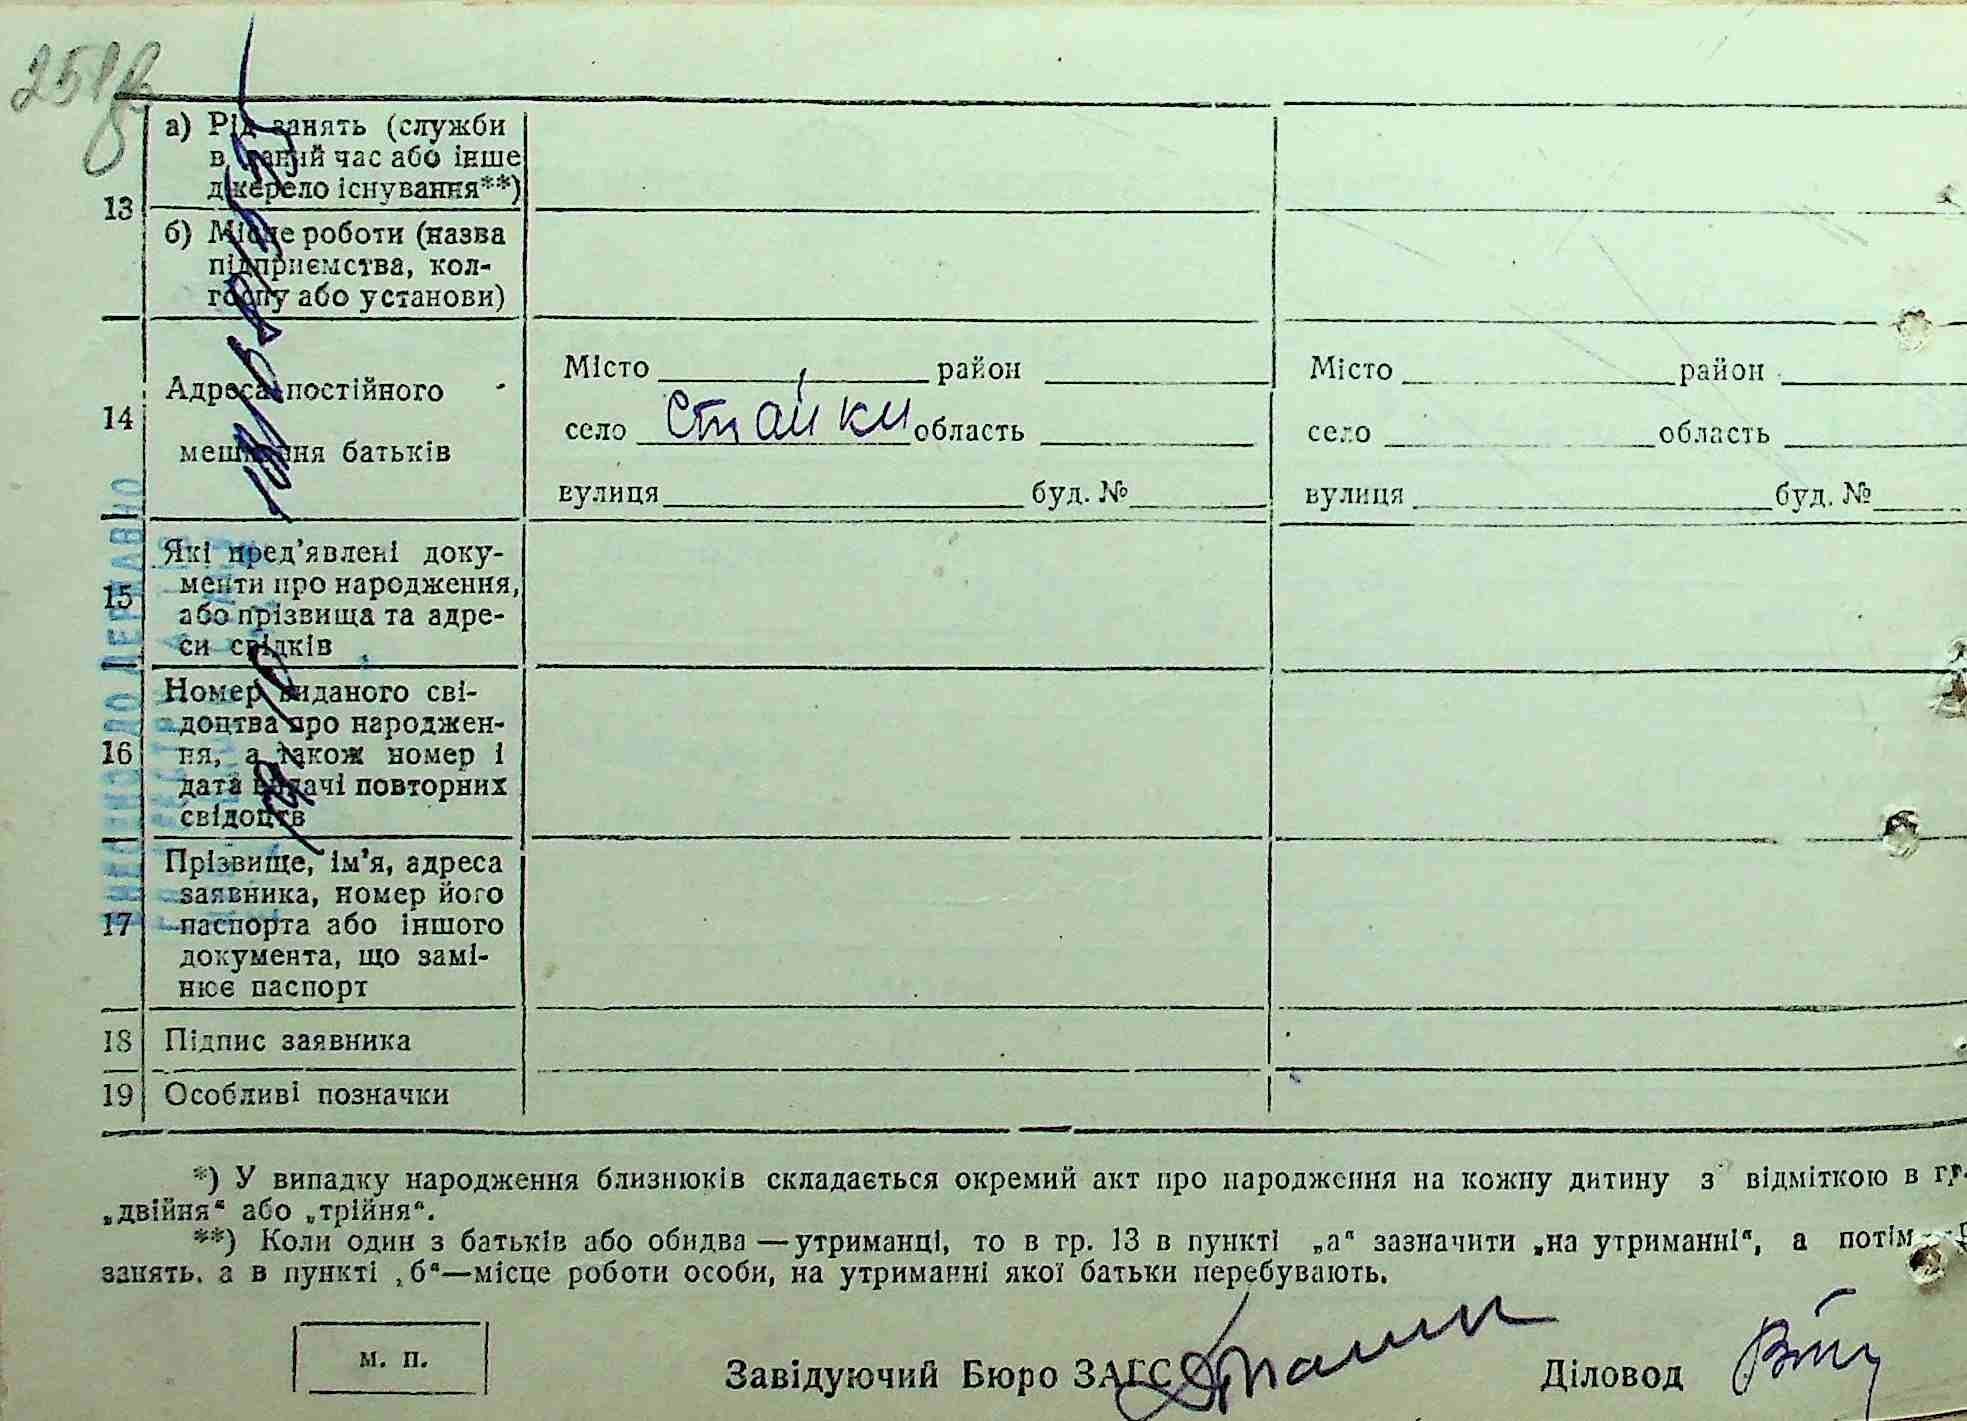 а) Рід занять (служби
в даний час або інше
джерело існування**)
13
б) Місце роботи (назва
підприємства, кол-
госпу або установи)
14
Адреса постійного
мешкання батьків
Місто район
село Стайки область
вулиця буд. №
Місто район
село область
вулиця буд. №
15
Які пред'явлені доку-
менти про народження,
або прізвища та адре-
си свідків
16
Номер виданого сві-
доцтва про народжен-
ня, а також номер і
дата видачі повторних
свідоцтв
17
Прізвище, ім'я, адреса
заявника, номер його
паспорта або іншого
документа, що замі-
нює паспорт
18 Підпис заявника
19 Особливі позначки
*) У випадку народження близнюків складається окремий акт про народження на кожну дитину з відміткою в гр.
„двійня“ або „трійня“.
**) Коли один з батьків або обидва — утриманці, то в гр. 13 в пункті „а“ зазначити „на утриманні“, а потім
занять, а в пункті „б“—місце роботи особи, на утриманні якої батьки перебувають.
м. п.
Завідуючий Бюро ЗАГС
Діловод